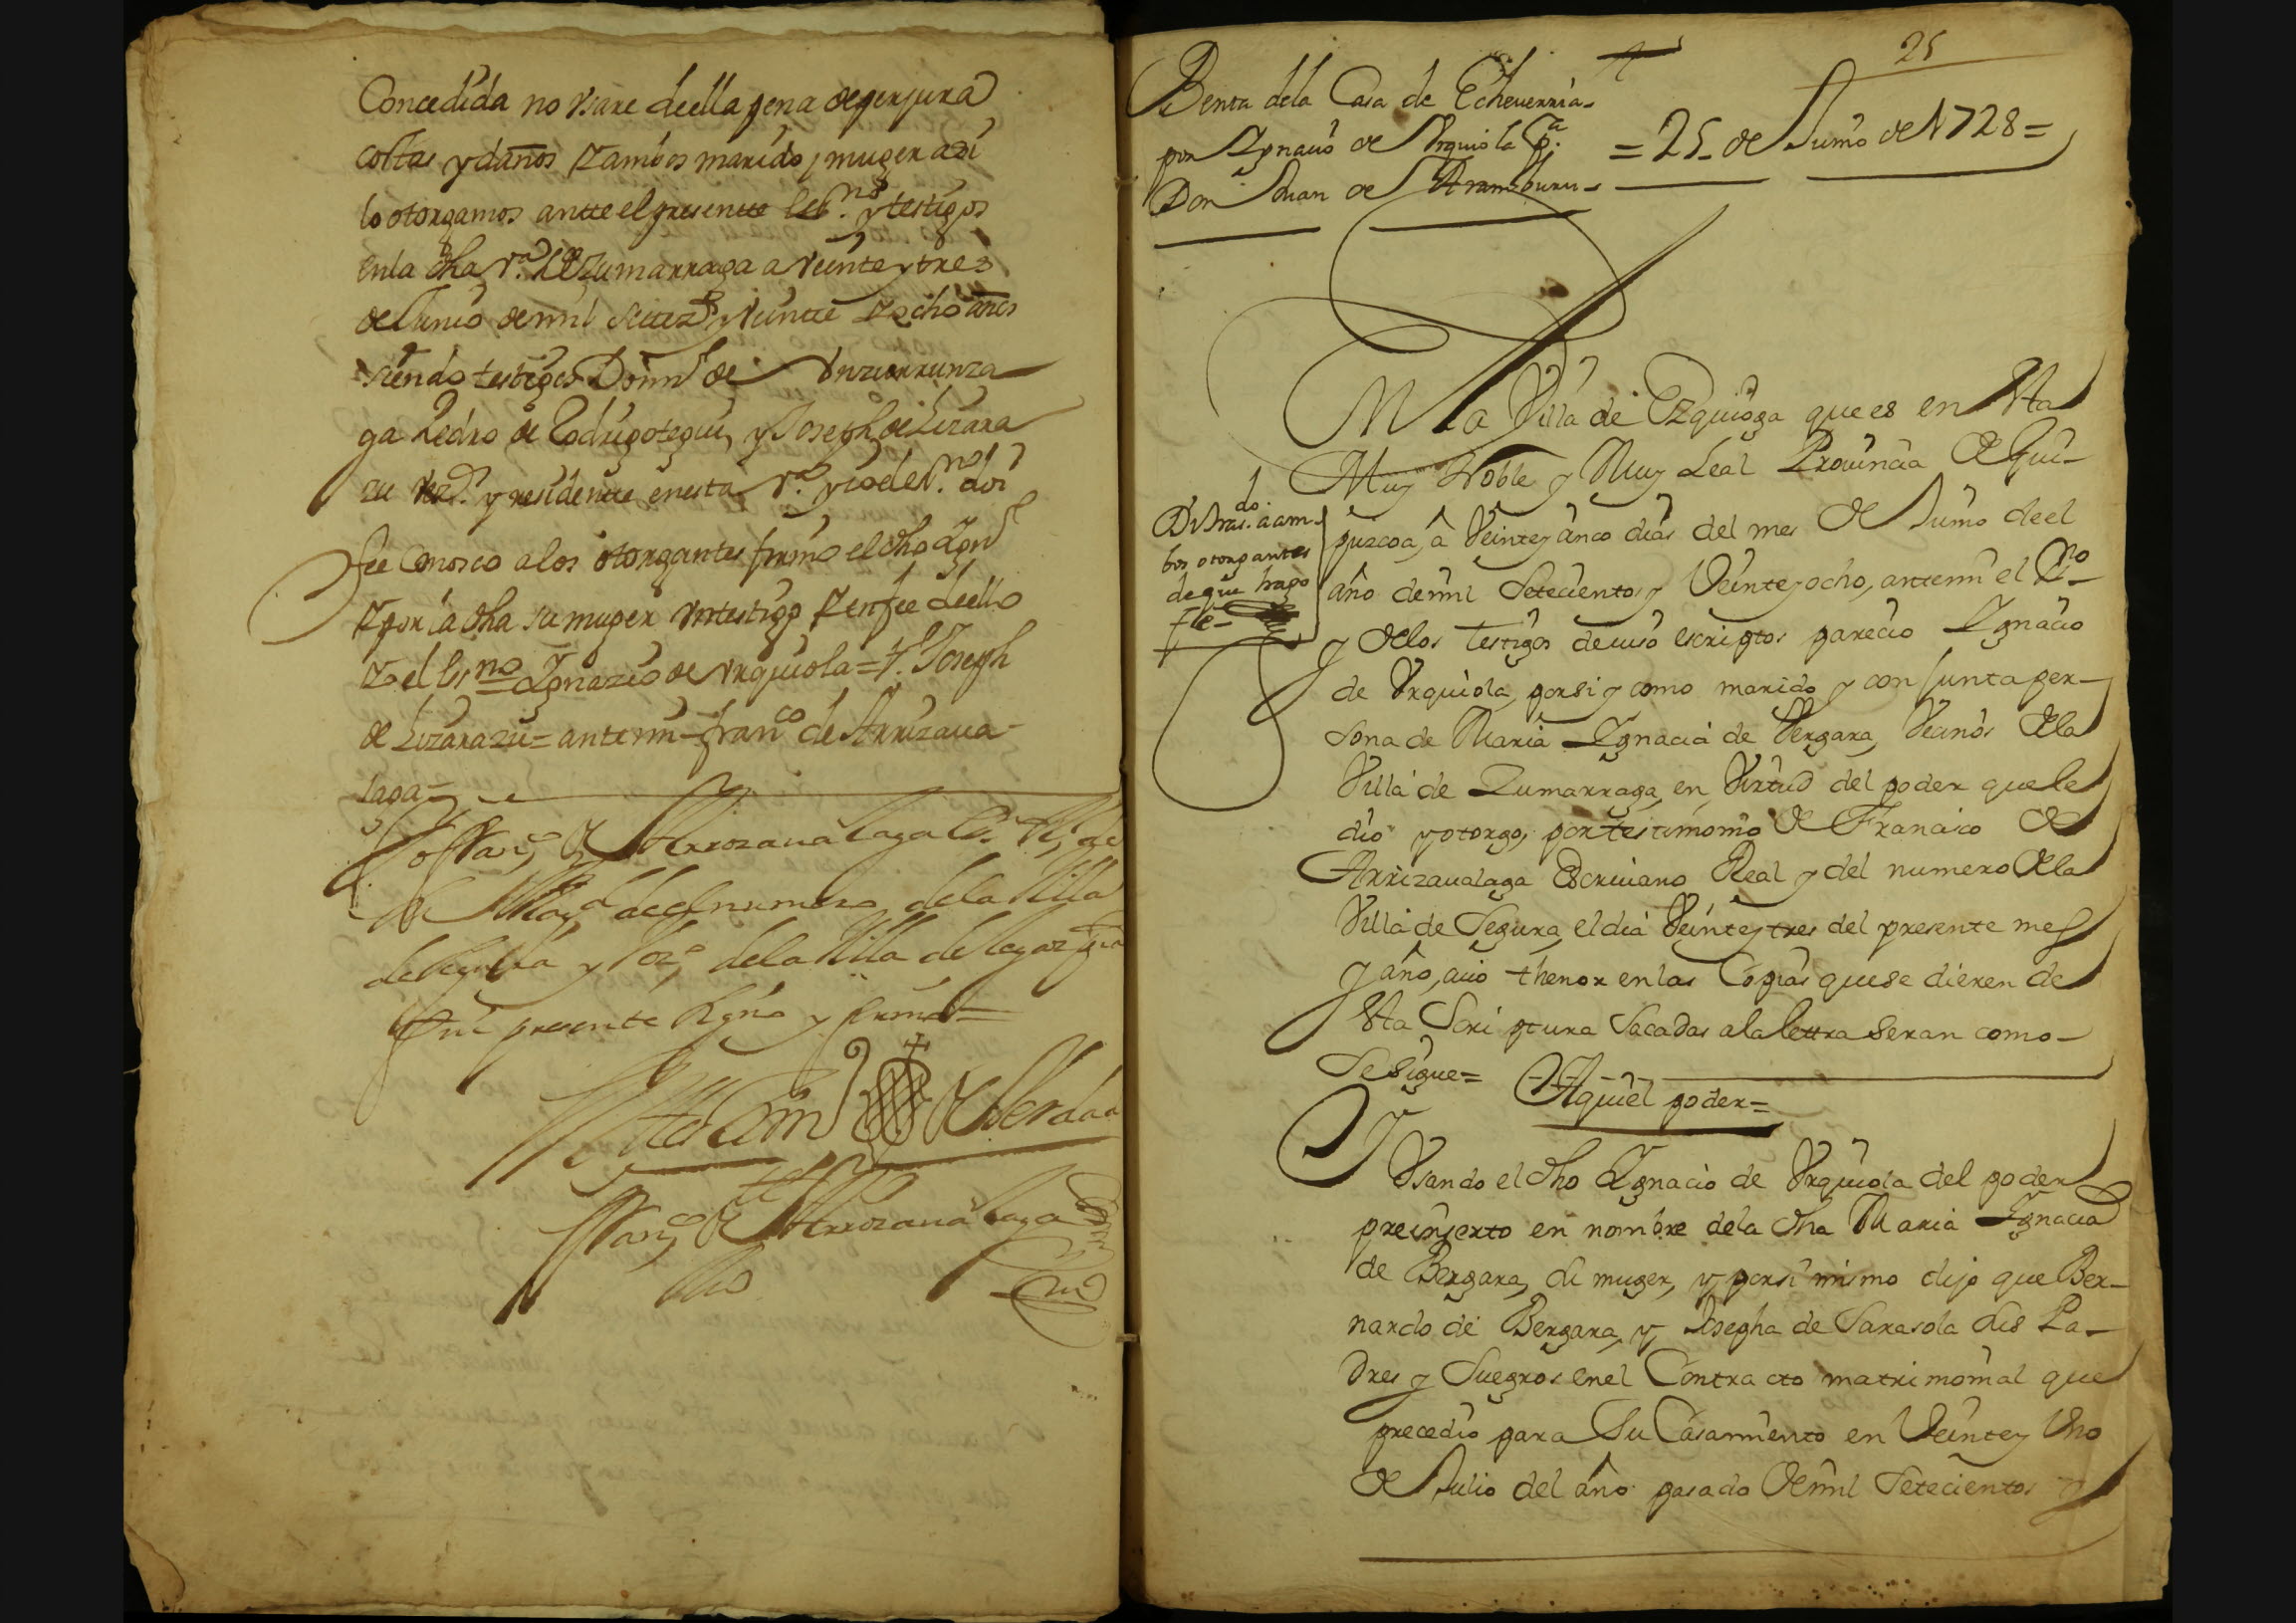 Concedida no Vsare deella pena de perjura
costas y daños Y ambos marido y muger asi
lo otorgamos antte el presentte Ess.no y testigos
en la dha V.a de Zumarraga a Veinte y tres
de Junio de mil Settez.s y Veintte Y ocho años
siendo testigos Dom.o de Vnzurrunza
ga Pedro de Codugotegui, y Joseph de Lizara
zu Vez.s y residentte en esta V.a y io el es.no doi
fee Conosco a los otorgantes firmo el dho Ign.o
Y por la dha su muger Vn testigo Y en fee de ello
Yo el Es.no = Ignazio de Vrquiola = T.o Joseph
de Lizarazu = ante mi = fran.co de Arrizaua
laga =
Yo Fran.co de Arrizaualaga es.no R.l de
su Mag.d del numero de la Villa
de Segura y Vez.o de la Villa de Legazpia
fui presente signo y firmo =
En testim.o de Verdad
Fran.co de Arrizaualaga
25
Benta dela Casa de Echeuerria
por Ygnacio de Vrquiola P.a
Don Juan de Aramburu
= 25 de Junio de 1728 =
En la Villa de Ezquioga que es en Esta
Muy Noble y Muy Leal Prouincia de Gui-
puzcoa, â Veinte y cinco dias del mes de Junio de el
año de mil Setecientos y Veinte y ocho, ante mi el Es.no
y de los testigos de iuso escriptos parecio Ygnacio
de Vrquiola, por si y como marido y conjunta per-
sona de Maria Ygnacia de Vergara, Vecinos de la
Villa de Zumarraga, en Virtud del poder que le
dio y otorgo, por testimonio de Francisco de
Arrizaualaga Escriuano Real y del numero de la
Villa de Segura, el dia Veinte y tres del presente mes
y año, cuio thenor en las Copias que se dieren de
Esta Scriptura Sacadas a la lettra Seran como
Se sigue =
Aqui el poder =
Di tras.do a am-
bos otorgantes
de que hago
fe =
Y Vsando el dho Ygnacio de Vrquiola del poder
preinserto en nombre de la dha Maria Ygnacia
de Bergara, su muger, y por si mismo dijo que Ber-
nardo de Bergara, y Josepha de Sarasola sus Pa-
dres y Suegros en el Contracto matrimonial que
precedio para Su Casamiento en Veinte y Vno
de Julio del año pasado de mil Setecientos y